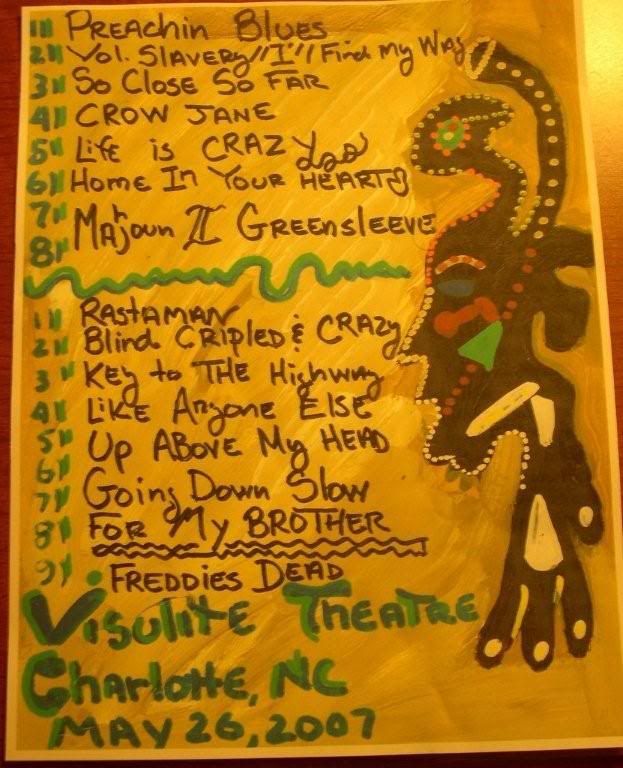 1) PREACHIN BLUES
2) Vol. SLAVERY "I" Find My WAy
3) SO CLOSE SO FAR
4) CROW JANE
5) LiFE iS CRAZy
6) HOME IN YOUR HEART
7) Mahjoun II GREENSLEEVE
8)
1) RASTAMAN
2) Blind CRIPLED & CRAZy
3) KEy to THE HigHwAy
4) LiKE Anyone ELSE
5) UP ABOVE My HEAD
6) Going Down Slow
7) FOR My BROTHER
8)
9) FREDDIES DEAD
Visulite THEATRE
CHARlOTTE, NC
MAY 26, 2007